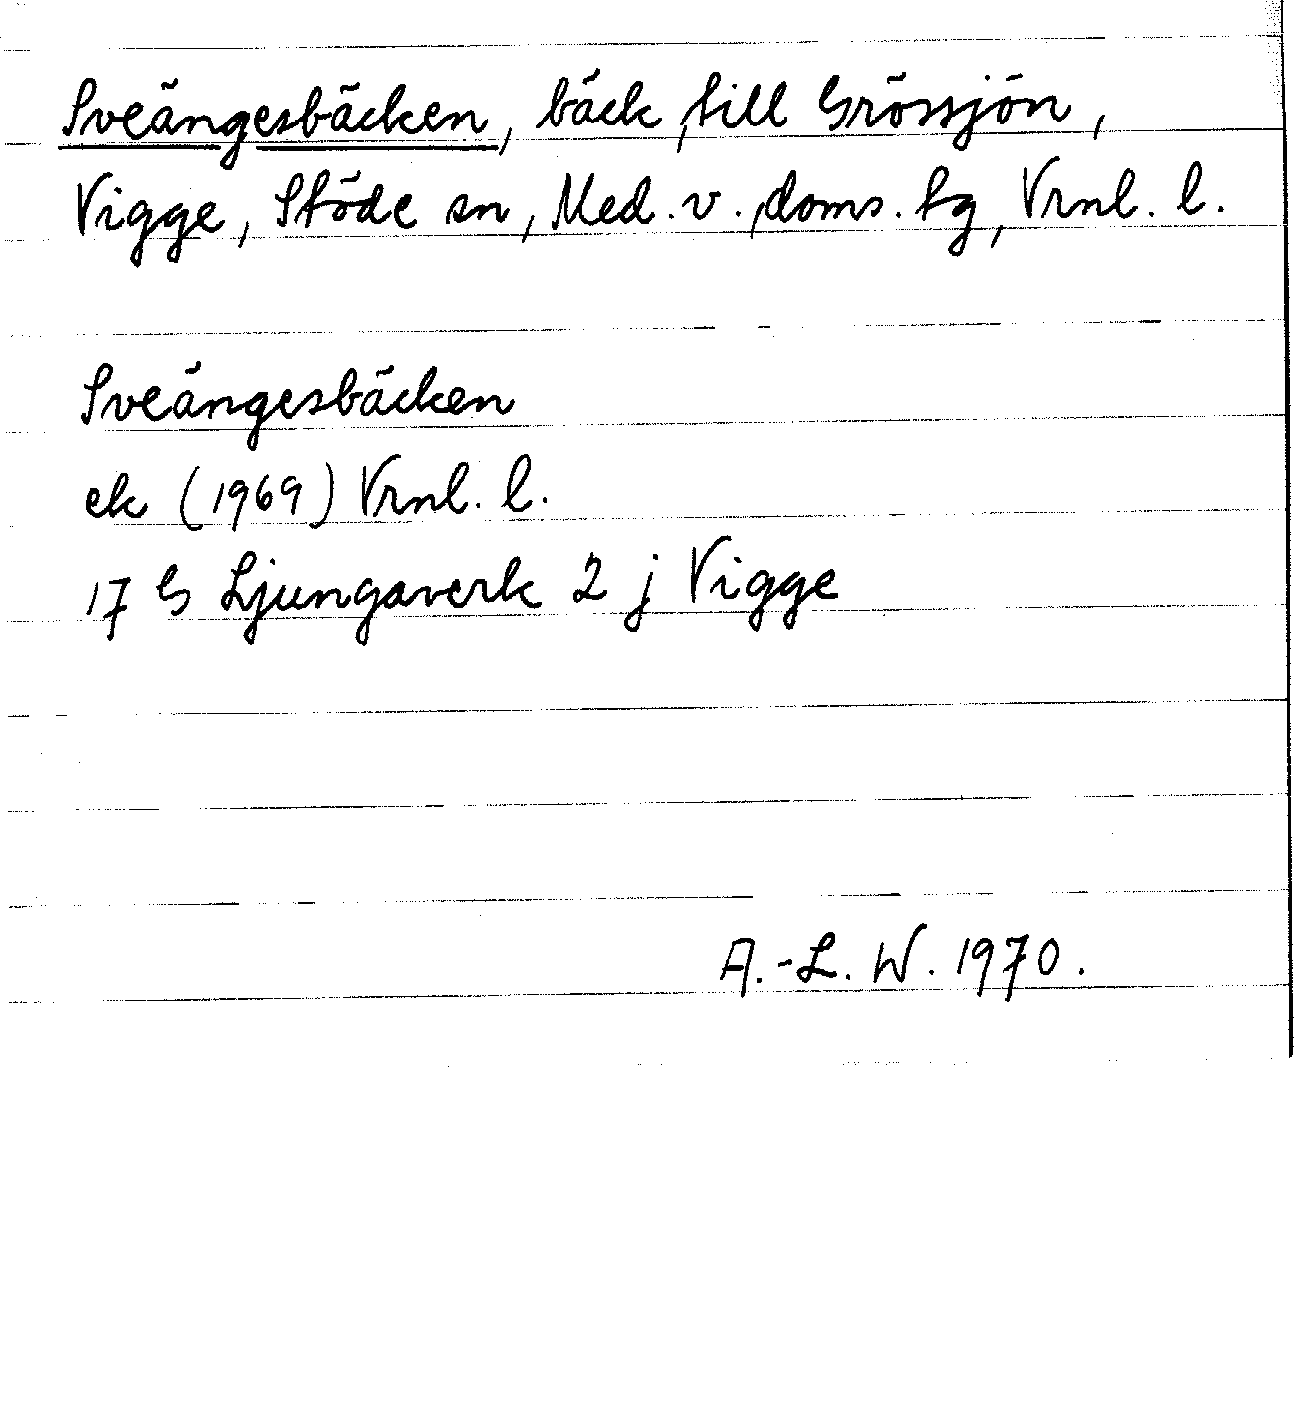 Sveängesbäcken, bäck till Grössjön,
Vigge, Stöde sn, Med. v. doms. tg, Vrnl. l.
Sveängesbäcken
ek (1969) Vrnl. l.
17 G Ljungaverk 2 j Vigge
A.-L. W. 1970.